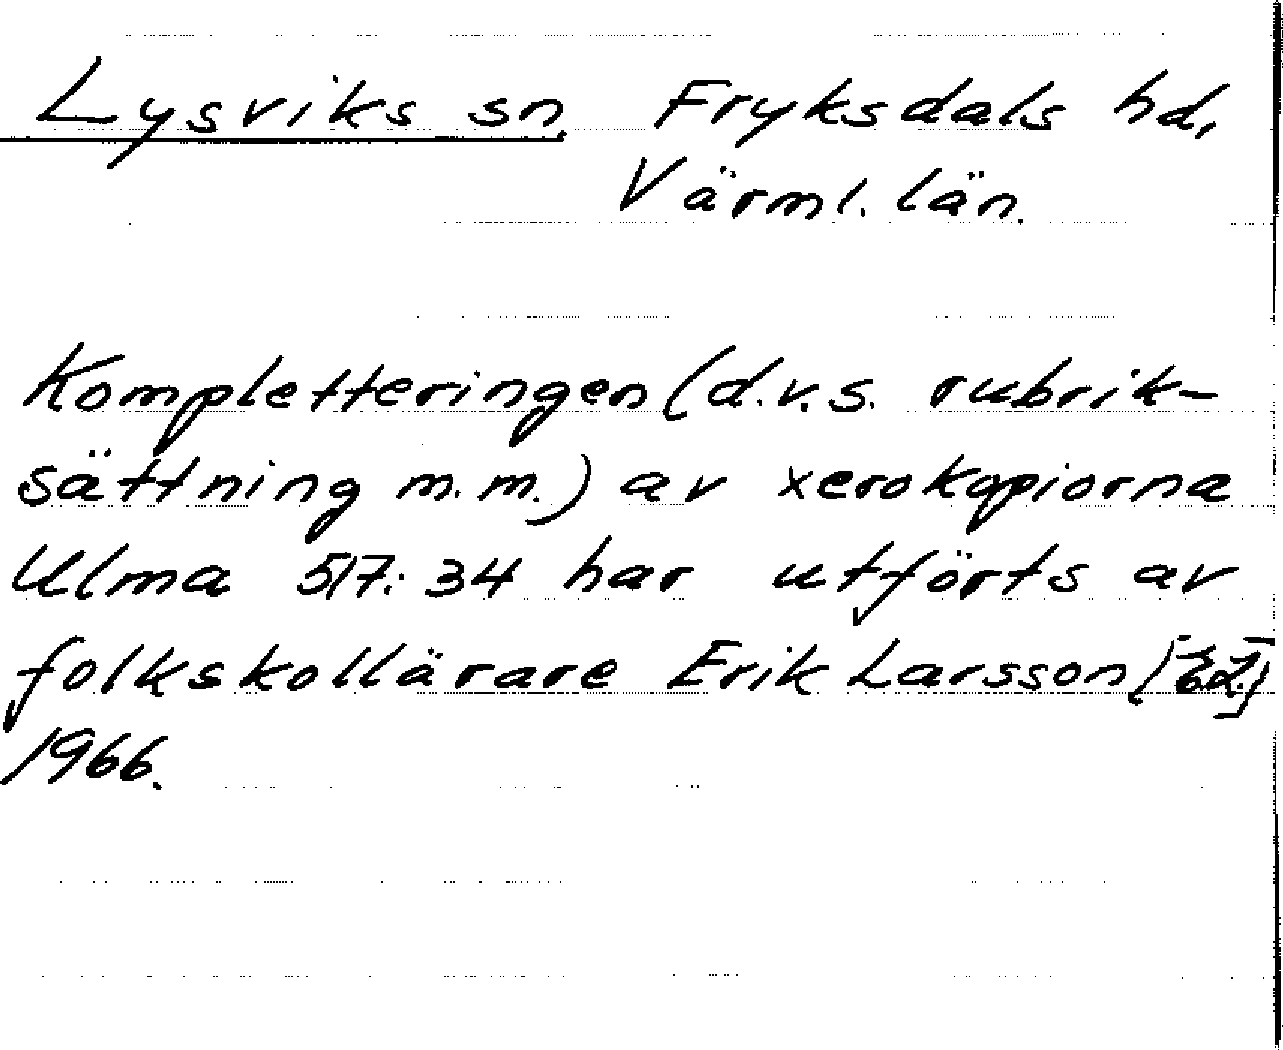 Lysviks sn, Fryksdals hd,
Värml. län.
Kompletteringen (d.v.s. rubrik-
sättning m.m.) av xerokopiorna
Ulma 517:34 har utförts av
folkskollärare Erik Larsson [EL]
1966.